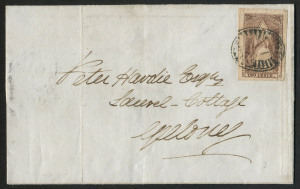 Peter Hardie Esqre
Laurel Cottage
Geelong